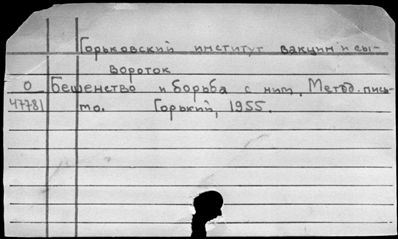 Горьковский институт вакцин и сы-
вороток
О Бешенство и борьба с ним. Метод. пись-
47781 мо. Горький, 1955.